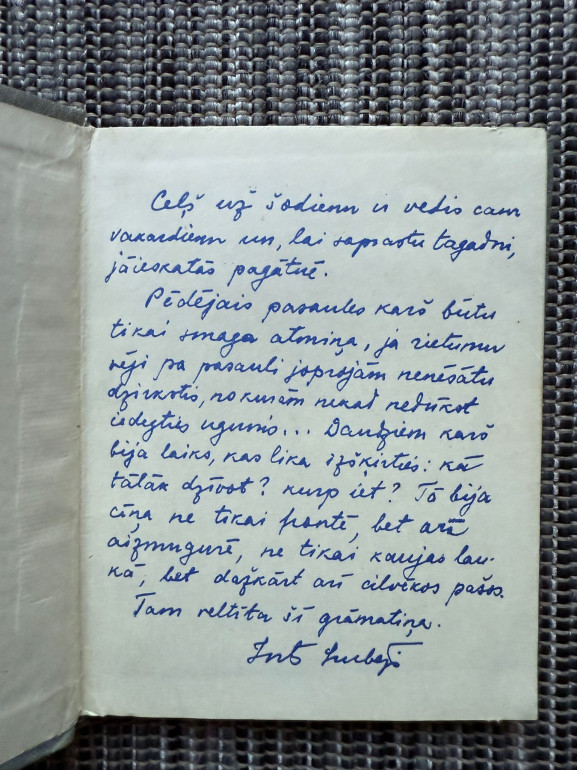 Ceļš uz šodienu ir vedis caur
vakardienu un, lai saprastu tagadni,
jāieskatās pagātnē.
Pēdējais pasaules karš būtu
tikai smaga atmiņa, ja rietumu
vēji pa pasauli joprojām nenēsātu
dzirksteles, no kurām nekad nedrīkst
iedegties ugunis... Daudziem karš
bija laiks, kas lika izšķirties: kā
tālāk dzīvot? kurp iet? Tā bija
cīņa ne tikai frontē, bet arī
aizmugurē, ne tikai kaujas lau-
kā, bet dažkārt arī cilvēkos pašos.
Tam veltīta šī grāmatiņa.